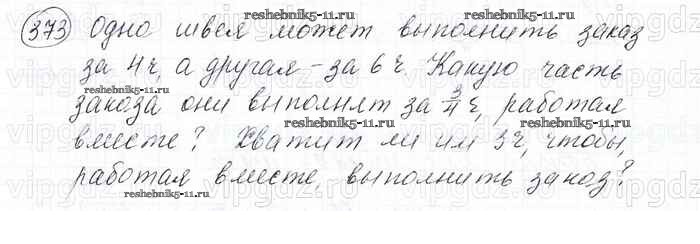 373 Одна швея может выполнить заказ
за 4 ч, а другая – за 6 ч. Какую часть
заказа они выполнят за 3/4 ч, работая
вместе? Хватит ли им 3 ч, чтобы,
работая вместе, выполнить заказ?
reshebnik5-11.ru reshebnik5-11.ru
reshebnik5-11.ru reshebnik5-11.ru
reshebnik5-11.ru
reshebnik5-11.ru reshebnik5-11.ru
vipgdz.ru